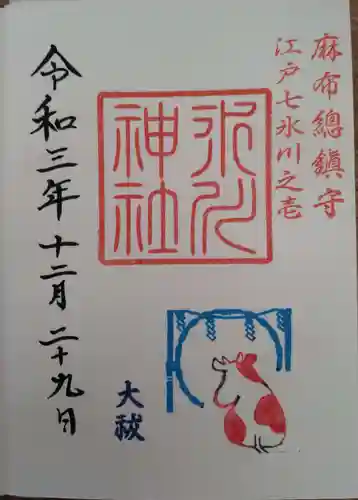 麻布總鎮守
江戸七氷川之壱
氷川神社
大祓
令和三年十二月二十九日